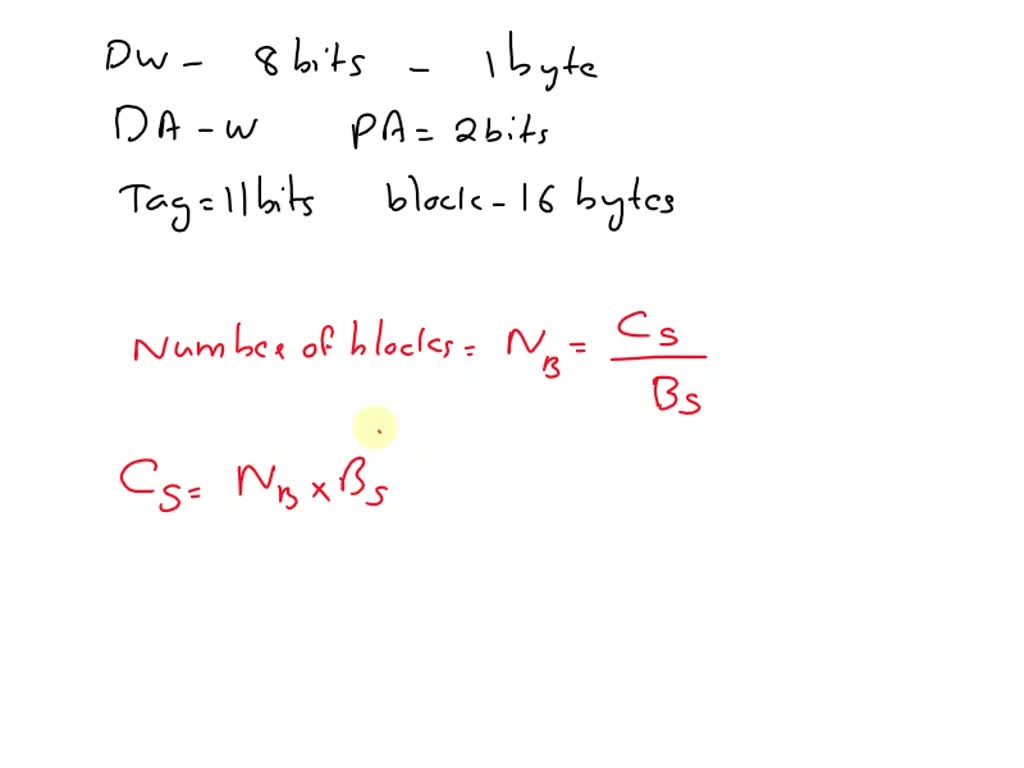 DW - 8 bits - 1 byte
DA - W PA = 2 bits
Tag = 11 bits block - 16 bytes
Number of blocks = N_B = C_S / B_S
C_S = N_B × B_S